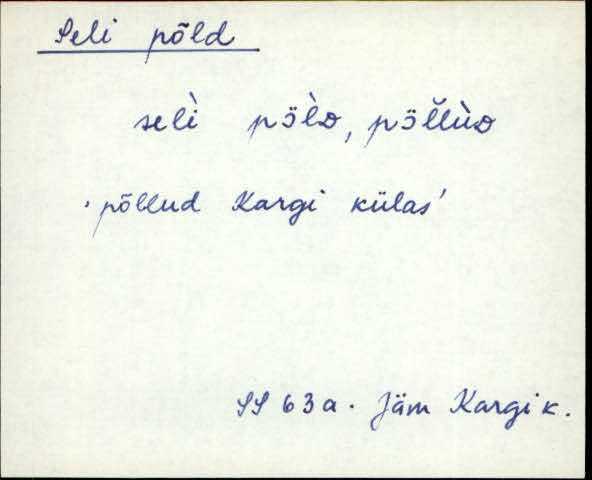 Seli põld
seli̇̀ pöl̀D, pöl̆lùD
'põllud Kargi külas'
SS 63a. Jäm Kargi k.